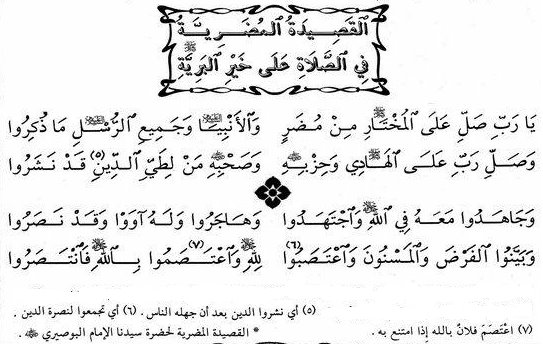 القَصِيدَةُ المُضَرِيَّةُ
فِي الصَّلَاةِ عَلَى خَيْرِ البَرِيَّةِ ﷺ
يَا رَبِّ صَلِّ عَلَى المُخْتَارِ ﷺ مِنْ مُضَرٍ وَالأَنْبِيَا وَجَمِيعِ الرُّسْلِ مَا ذُكِرُوا
وَصَلِّ رَبِّ عَلَى الهَادِي ﷺ وَحِزْبِهِ وَصَحْبِهِ مَنْ لِطَيِّ الدِّينِ (٥) قَدْ نَشَرُوا
وَجَاهَدُوا مَعَهُ فِي اللهِ وَاجْتَهَدُوا وَهَاجَرُوا وَلَهُ آوَوْا وَقَدْ نَصَرُوا
وَبَيَّنُوا الفَرْضَ وَالمَسْنُونَ وَاعْتَصَبُوا (٦) لِلهِ وَاعْتَصَمُوا (٧) بِاللهِ فَانْتَصَرُوا
(٥) أي نشروا الدين بعد أن جهله الناس . (٦) أي تجمعوا لنصرة الدين .
(٧) اعْتَصَمَ فلانٌ بالله إذا امتنع به . * القصيدة المضرية لحضرة سيدنا الإمام البوصيري